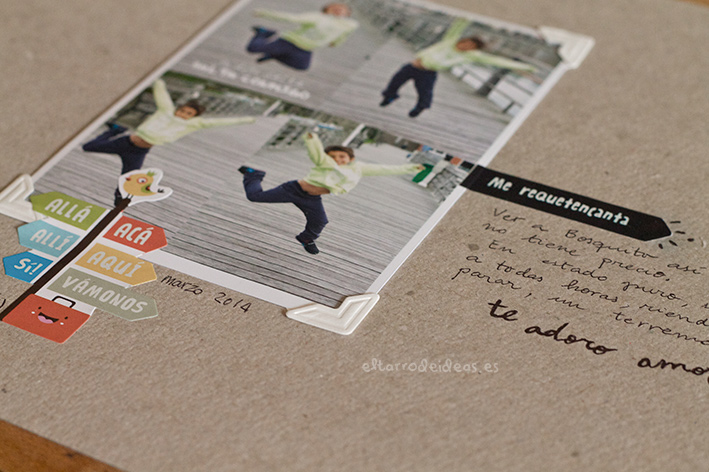 ALLÁ
ALLÍ
ACÁ
Sí!
AQUÍ
VAMONOS
marzo 2014
Me requetencanta
Ver a Bosquito así
no tiene precio.
En estado puro,
a todas horas, riend
parar, un terrem
te adoro amo
eltarrodeideas.es